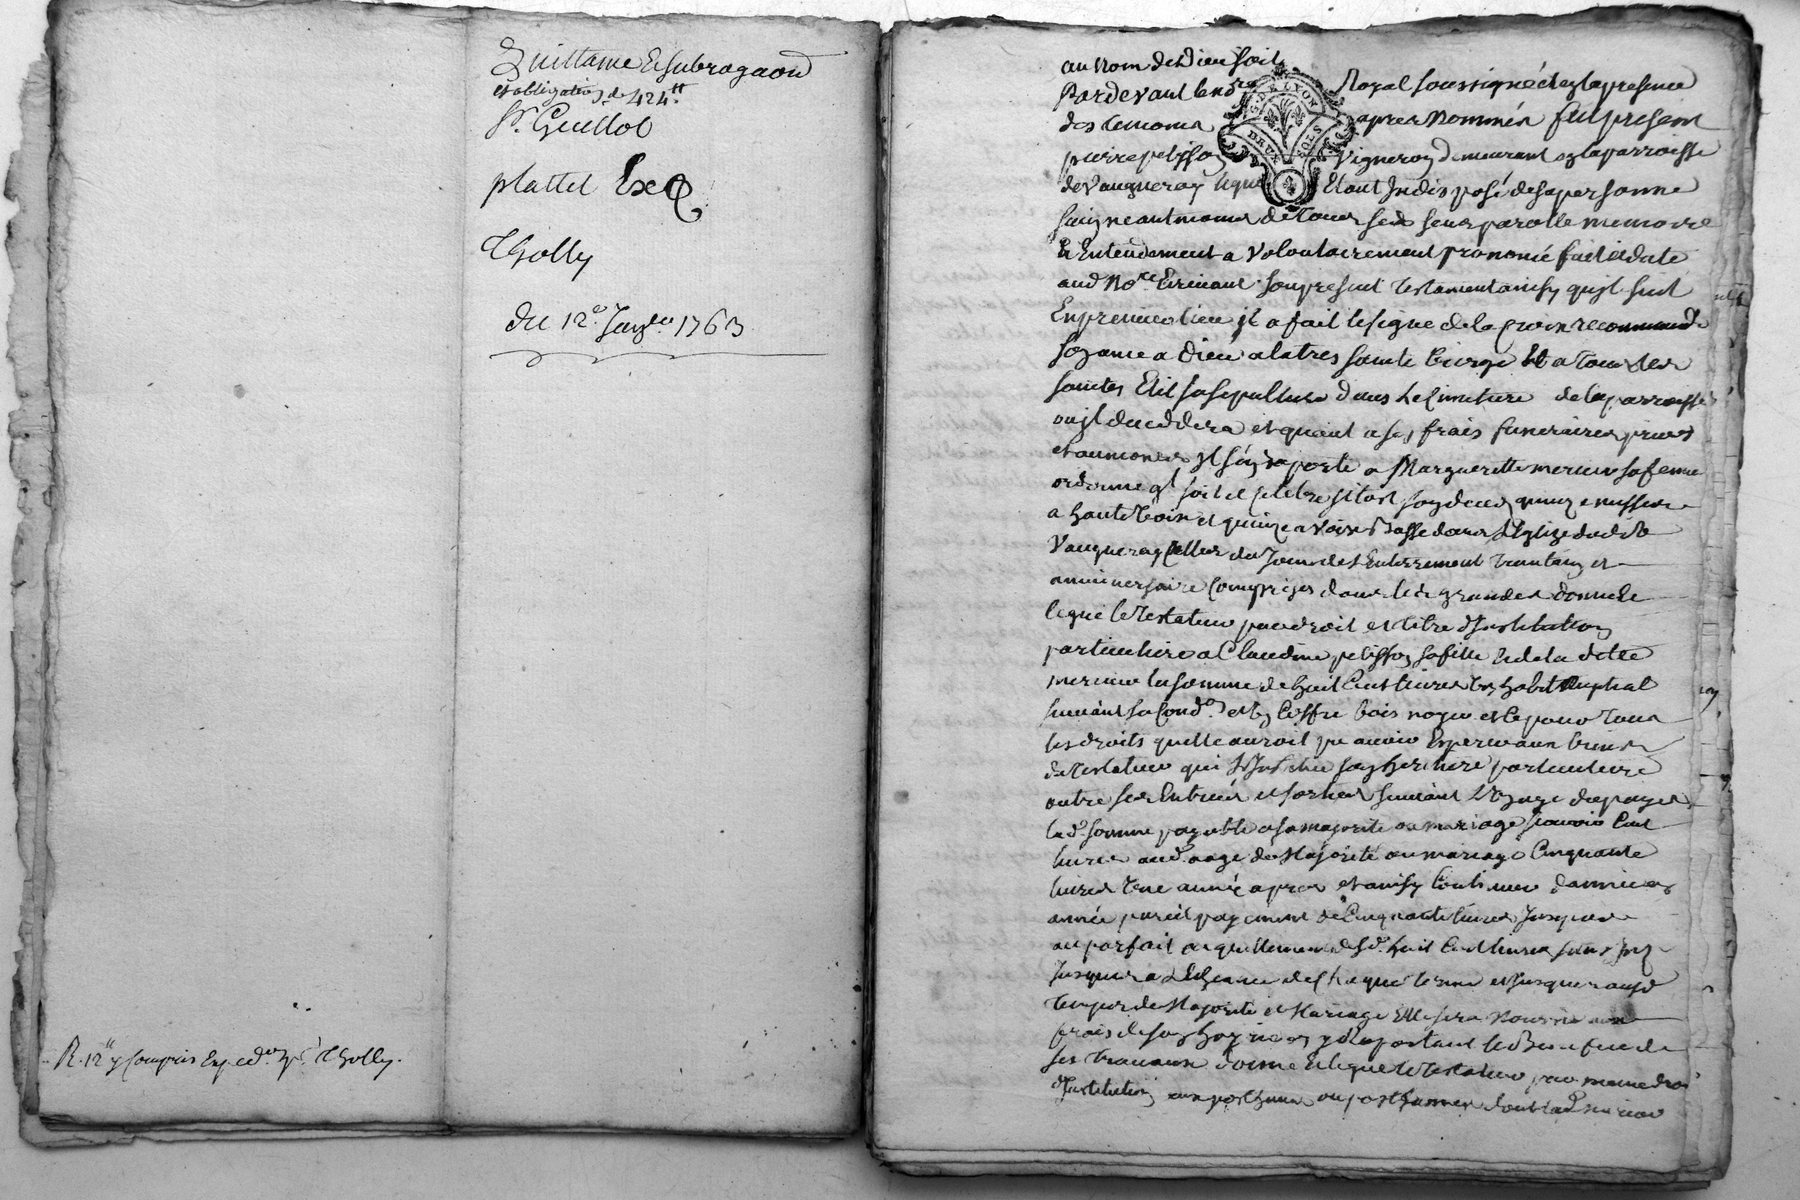 Quittance Et subrogaõn
et obligation de 424ᵗᵗ
Sʳ Guillot
plattet Exé
Tholly
du 12ᵉ Janvier 1763
R. 12ᵗᵗ y Compris Exped.
Tholly.
au Nom de Dieu soit
Pardevant le noʳᵉ Royal soussigné et en la presence
des temoins apres Nommés fut present
pierre pelisson Vigneron demeurant en la parroisse
de Vaugneray lequel Etant Indisposé de sa personne
sain neantmoins de tous ses sens parolle memoire
Et Entendement a Volontairement prononcé fait et dicté
aud Noʳᵉ Ecrivant son present testament ainsy quil suit
En premier lieu il a fait le signe de la Croix recommandé
son ame a Dieu a la tres sainte Vierge Et a tous les
saintes Elit sa sepulture dans le Cimetiere de la parroisse
ou il deceddera et quant a ses frais funeraires prieres
et aumones il sen raporte a Margueritte mercier sa femme
ordonne ql soit celebré sitost son deces quinze messes
a haute voix et quinze a voix Basse dans L'Eglize dudit
Vaugneray celles du Jour de l'Enterrement
anniversaire Comprises dans les grandes donne Et
legue le testateur par droit et titre d'Institution
particuliere a Claudine pelisson sa fille Et de la ditte
mercier la somme de huit Cent livres Un habit Nuptial
suivant sa Condᵒⁿ et un Coffre bois noyer et ce pour tous
les droits quelle auroit pu avoir Esperer aux biens
du testateur qui L'Institue son heritiere particuliere
outre ses Entrées et sorties suivant L'Usage du pays
la dᵉ somme payable a sa majorité ou mariage scavoir Cent
livres aud. aage de Majorité ou mariage Cinquante
livres Une année apres et ainsy Continuer d'année en
année pareil payement de Cinquante livres Jusques
au parfait acquittement desd. huit Cent livres sans
Jusques a L'Echeance de Chaque terme et Jusques aud
temps de Majorité et Mariage Elle sera Nourrie aux
frais de son hoyrie en y Raportant le Benefice de
ses travaux donne Et legue le testateur par meme droit
d'Institution aux posthume ou posthumes dont lad mercier